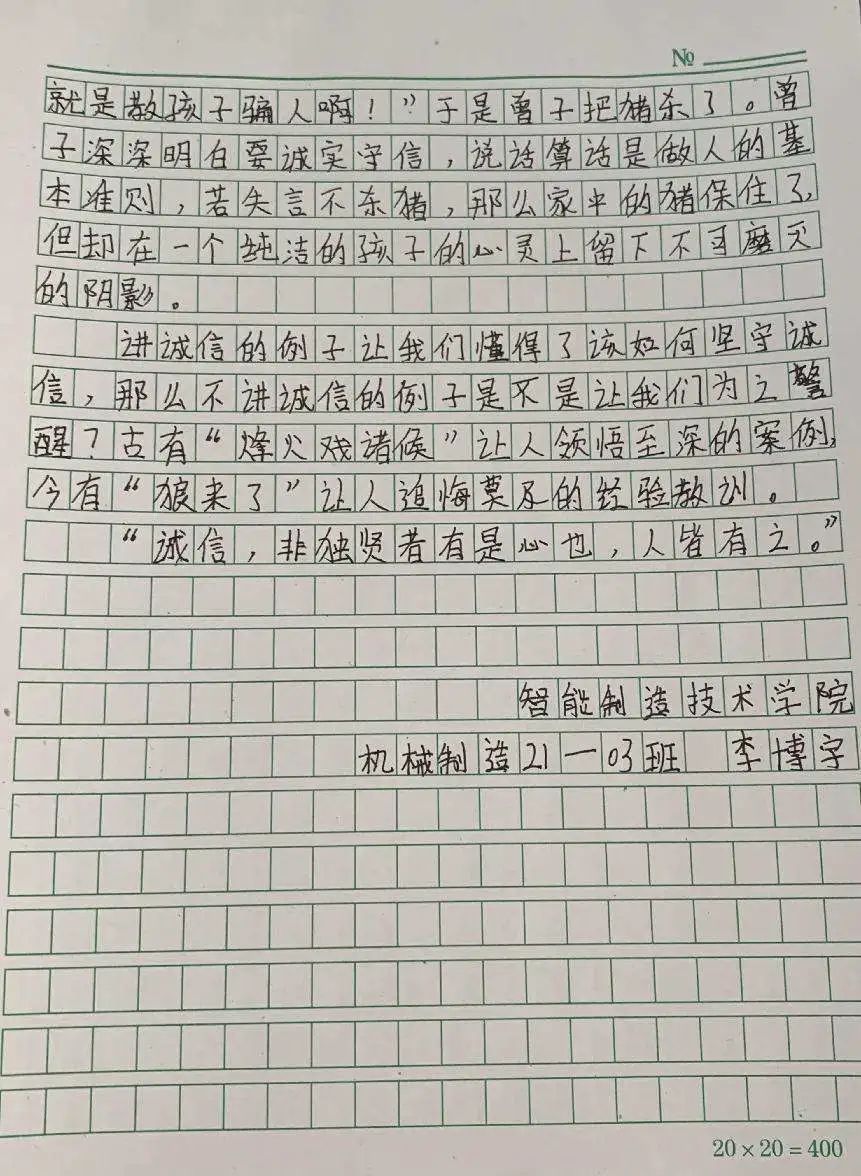 №
就是教孩子骗人啊！”于是曾子把猪杀了。曾
子深深明白要诚实守信，说话算话是做人的基
本准则，若失言不杀猪，那么家中的猪保住了，
但却在一个纯洁的孩子的心灵上留下不可磨灭
的阴影。
讲诚信的例子让我们懂得了该如何坚守诚
信，那么不讲诚信的例子是不是让我们为之警
醒？古有“烽火戏诸候”让人领悟至深的案例，
今有“狼来了”让人追悔莫及的经验教训。
“诚信，非独贤者有是心也，人皆有之。”
智能制造技术学院
机械制造21一03班 李博宇
20×20=400